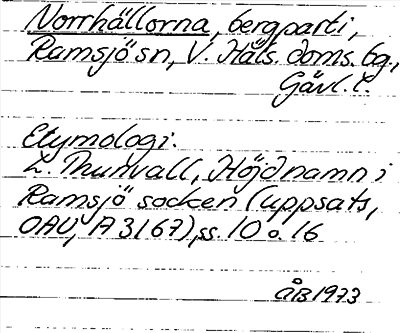 Norrhällorna, bergparti,
Ramsjö sn, V. Häls. doms. tg.,
Gävl. l.
Etymologi.
L. Thunvall, Höjdnamn i
Ramsjö socken (uppsats,
OAU, A 3167), ss. 10 o. 16
ÅB 1973